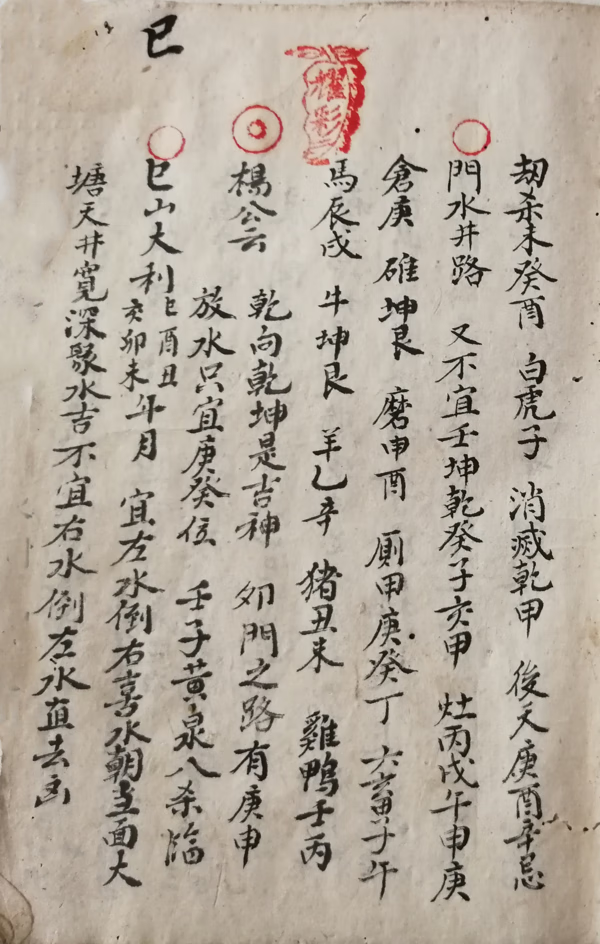 巳
劫杀未癸酉 白虎子 消滅乾甲 後天庚酉辛忌
門水井路 又不宜壬坤乾癸子亥甲 灶丙戌午申庚
倉庚 碓坤艮 磨申酉 厠甲庚癸丁 六畜甲子午
馬辰戌 牛坤艮 羊乙辛 猪丑未 雞鴨壬丙
楊公云 乾向乾坤是吉神 卯門之路有庚申
放水只宜庚癸位 壬子黄泉八杀臨
巳山大利巳酉丑亥卯未年月 宜左水倒右喜水朝堂面大
塘天井寬深聚水吉不宜右水倒左水直去凶